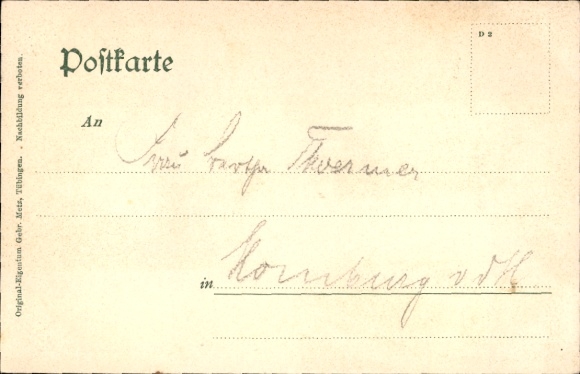 Postkarte
D 2
An
Frau Martha Thoermer
in Homburg v d H
Original-Eigentum Gebr. Metz, Tübingen. . Nachbildung verboten.